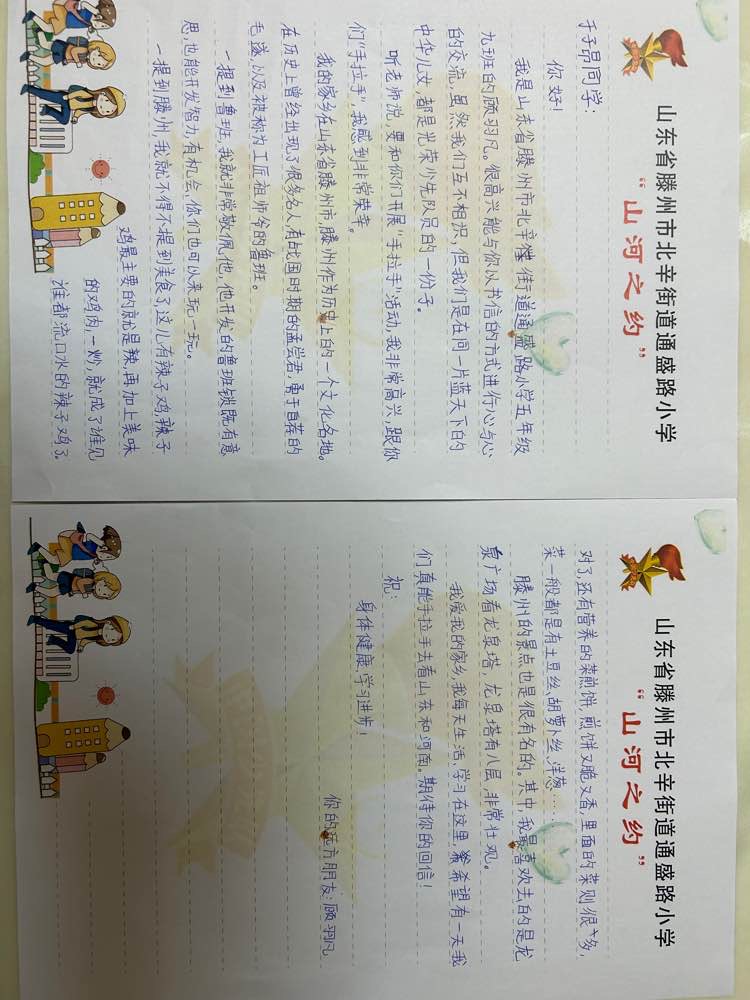 山东省滕州市北辛街道通盛路小学
“山河之约”
于子昂同学：
你好！
我是山东省滕州市北辛街道通盛路小学五年级
九班的顾羽凡。很高兴能与你以书信的方式进行心与心
的交流，虽然我们互不相识，但我们是在同一片蓝天下的
中华儿女，都是光荣少先队员的一份子。
听老师说，要和你们开展“手拉手”活动，我非常高兴，跟你
们“手拉手”，我感到非常荣幸。
我的家乡在山东省滕州市，滕州作为历史上的一个文化名地。
在历史上曾经出现了很多名人，有战国时期的孟尝君，勇于自荐的
毛遂，以及被称为工匠祖师爷的鲁班。
一提到鲁班，我就非常敬佩他，他开发的鲁班锁既有意
思，也能开发智力，有机会，你们也可以来玩一玩。
一提到滕州，我就不得不提到美食了，这儿有辣子鸡，辣子
鸡最主要的就是辣，再加上美味
的鸡肉，一炒，就成了谁见
谁都流口水的辣子鸡了。
山东省滕州市北辛街道通盛路小学
“山河之约”
对了，还有营养的菜煎饼，煎饼又脆又香，里面的菜则很多，
菜一般都是有土豆丝、胡萝卜丝、洋葱……
滕州的景点也是很有名的。其中，我最喜欢去的是龙
泉广场看龙泉塔，龙泉塔有八层，非常壮观。
我爱我的家乡，我每天生活、学习在这里，希望有一天我
们真能手拉手去看山东和河南。期待你的回信！
祝：
身体健康，学习进步！
你的远方朋友：顾羽凡